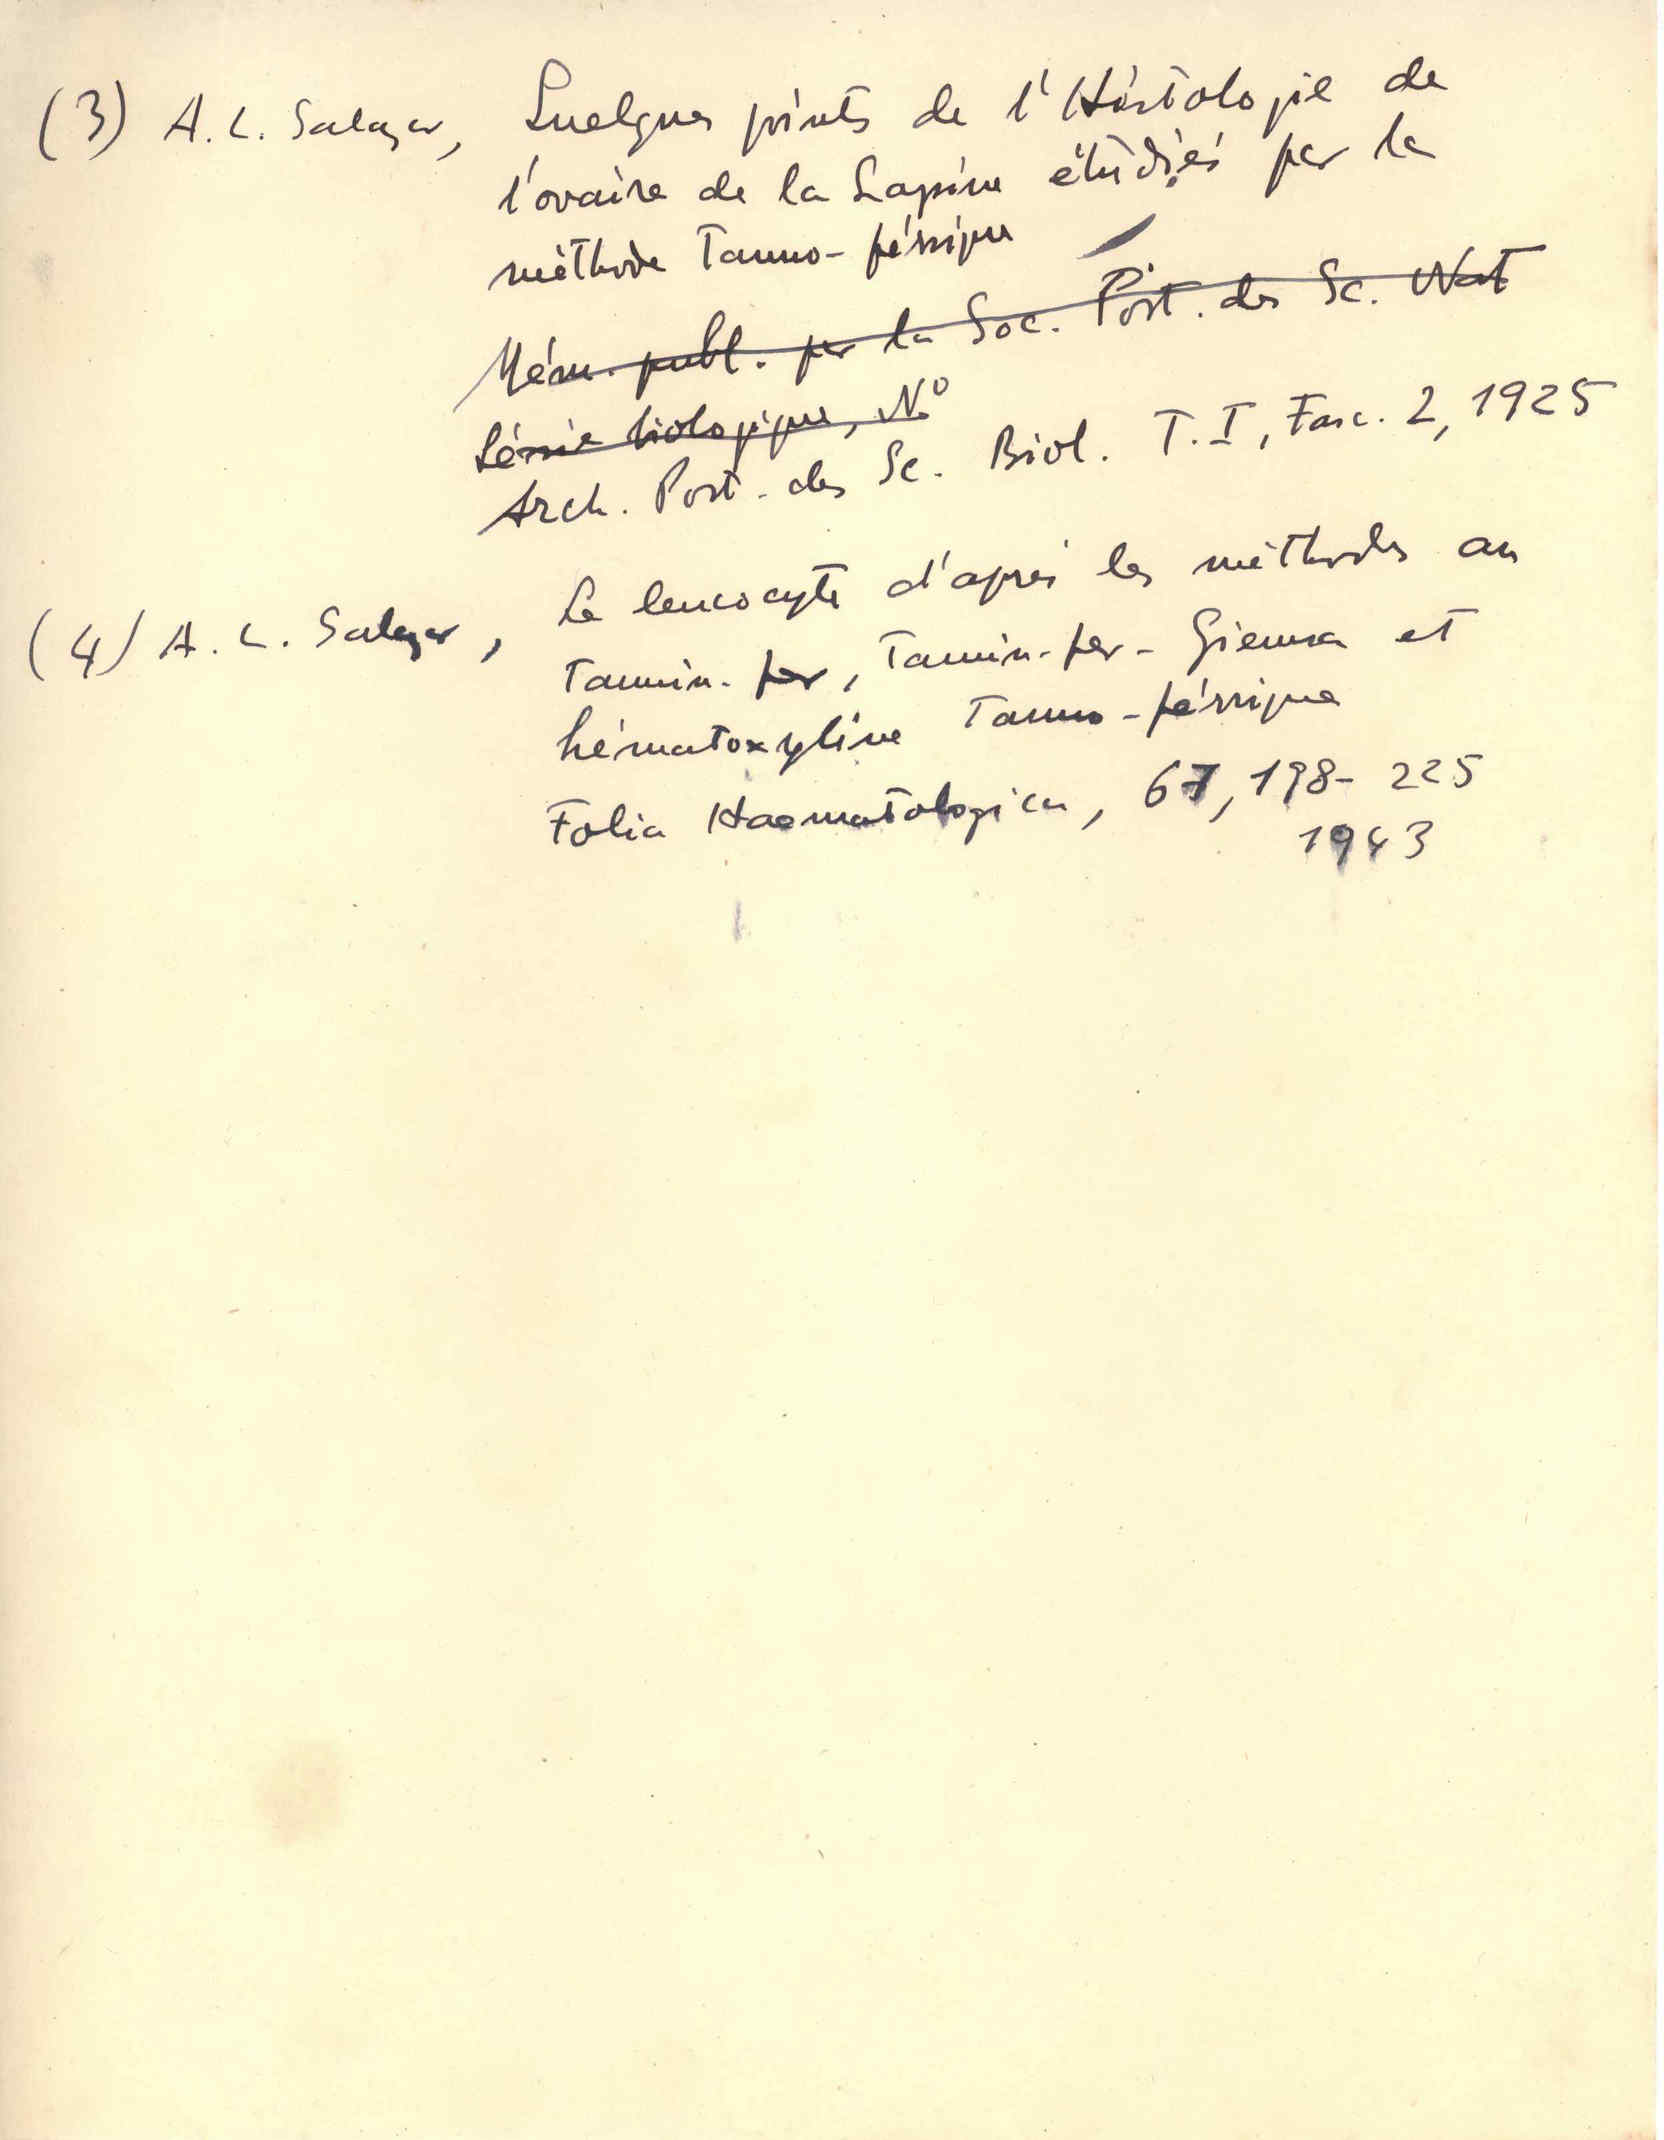 (3) A. L. Salazar, Quelques points de l'Histologie de
l'ovaire de la Lapine étudiés par la
méthode Tanno-férrique
Mém. publ. par la Soc. Port. des Sc. Nat
Série biologique, Nº
Arch. Port. des Sc. Biol. T. I, Fasc. 2, 1925
(4) A. L. Salazar, Le leucocyte d'après les méthodes au
Tannin-fer, Tannin-fer-Giemsa et
hématoxyline Tanno-férrique
Folia Haematologica, 67, 198-225
1943